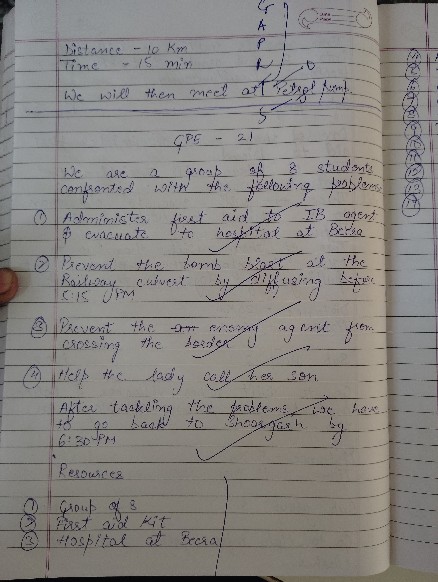 G
A
P
Distance - 10 Km
R
Time - 15 min
We will then meet at Petrol pump
S
GPE - 21
We are a group of 8 students
confronted with the following problems
① Administer first aid to IB agent
& evacuate to hospital at Becra
② Prevent the bomb blast at the
Railway culvert by diffusing before
5:15 PM
③ Prevent the enemy agent from
crossing the border
④ Help the lady call her son
After tackling the problems we have
to go back to Shoorgarh by
6:30 PM
Resources
① Group of 8
② First aid Kit
③ Hospital at Becra